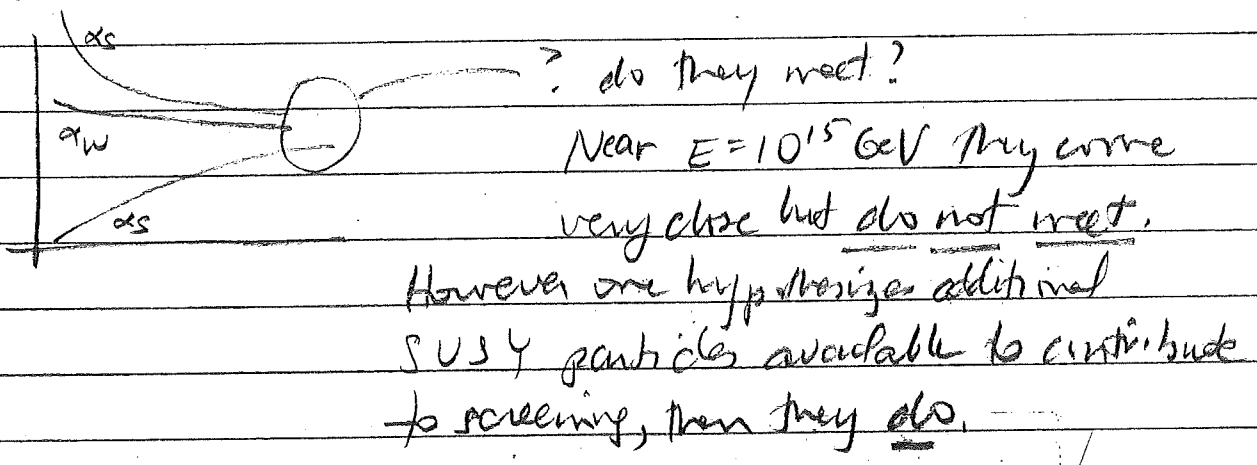 αs
? do they meet?
αw
Near E=10¹⁵ GeV they come
αs
very close but do not meet.
However one hypothesizes additional
SUSY particles available to contribute
to screening, then they do.